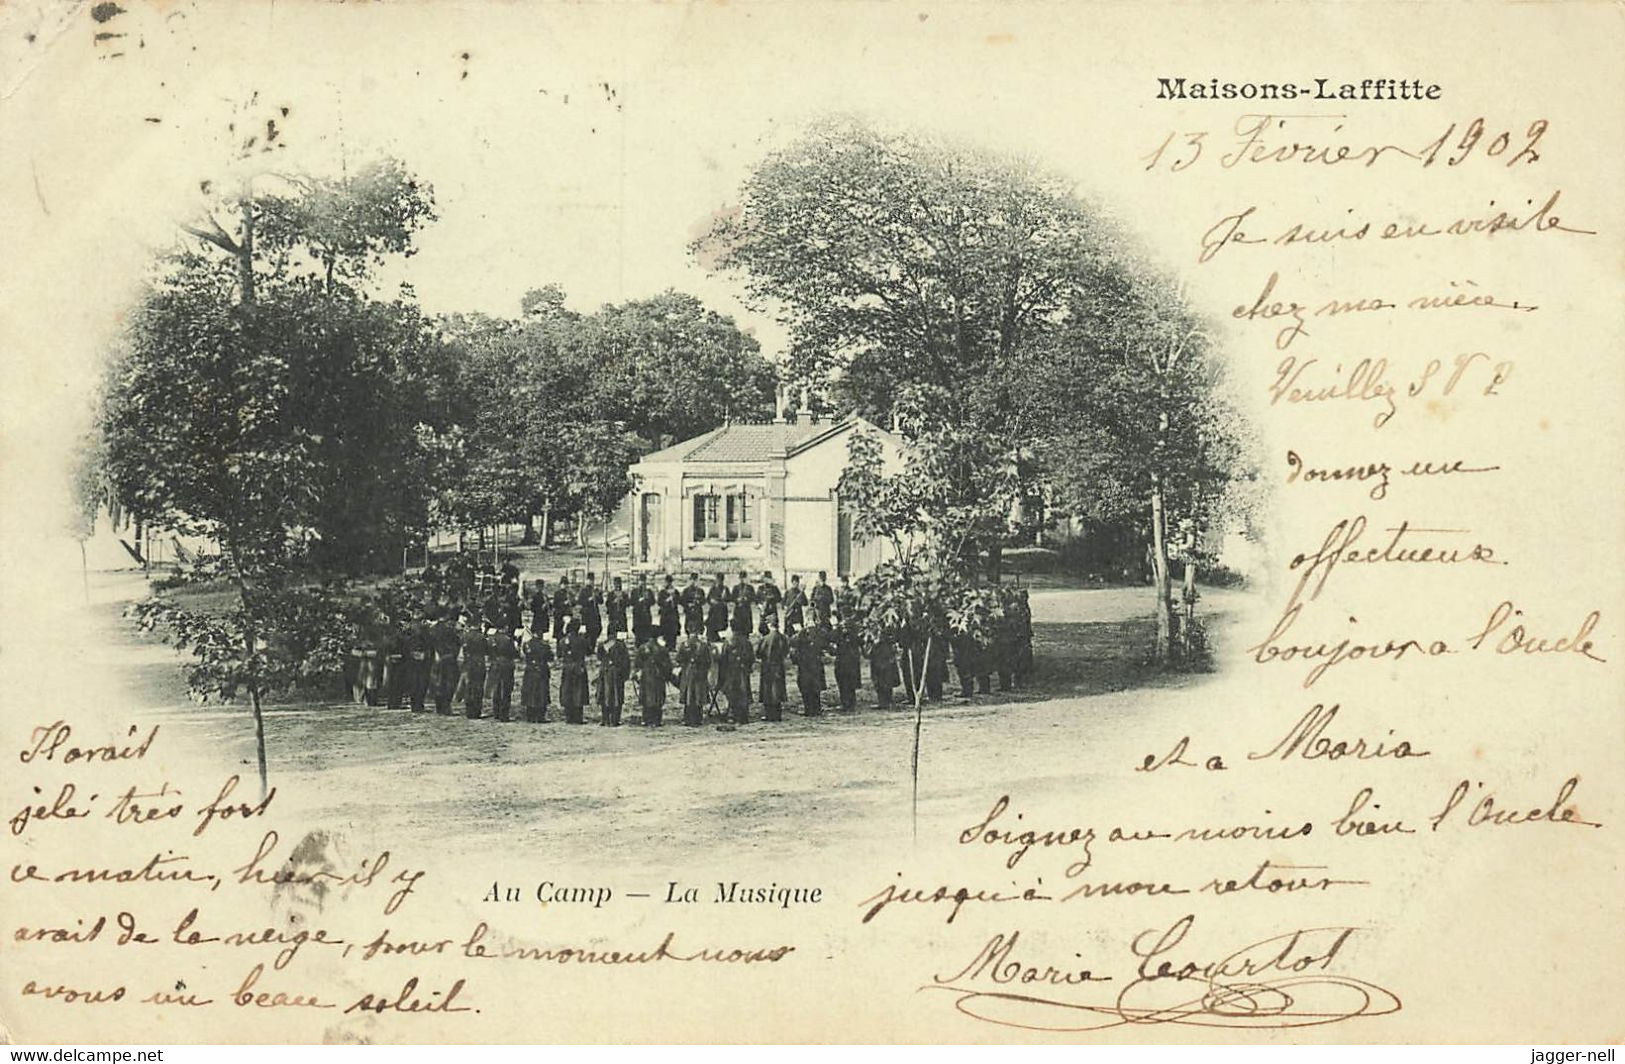 Maisons-Laffitte
13 Février 1902
Je suis en visite
chez ma nièce.
Veuillez S V P
donnez un
affectueux
boujour a l'Oncle
et a Maria
Soignez au moins bien l'Oncle
jusqu'à mon retour
Marie Courtot
Il avait
jelé très fort
ce matin, hier il y
avait de la neige, pour le moment nous
avons un beau soleil.
Au Camp — La Musique
www.delcampe.net
jagger-nell